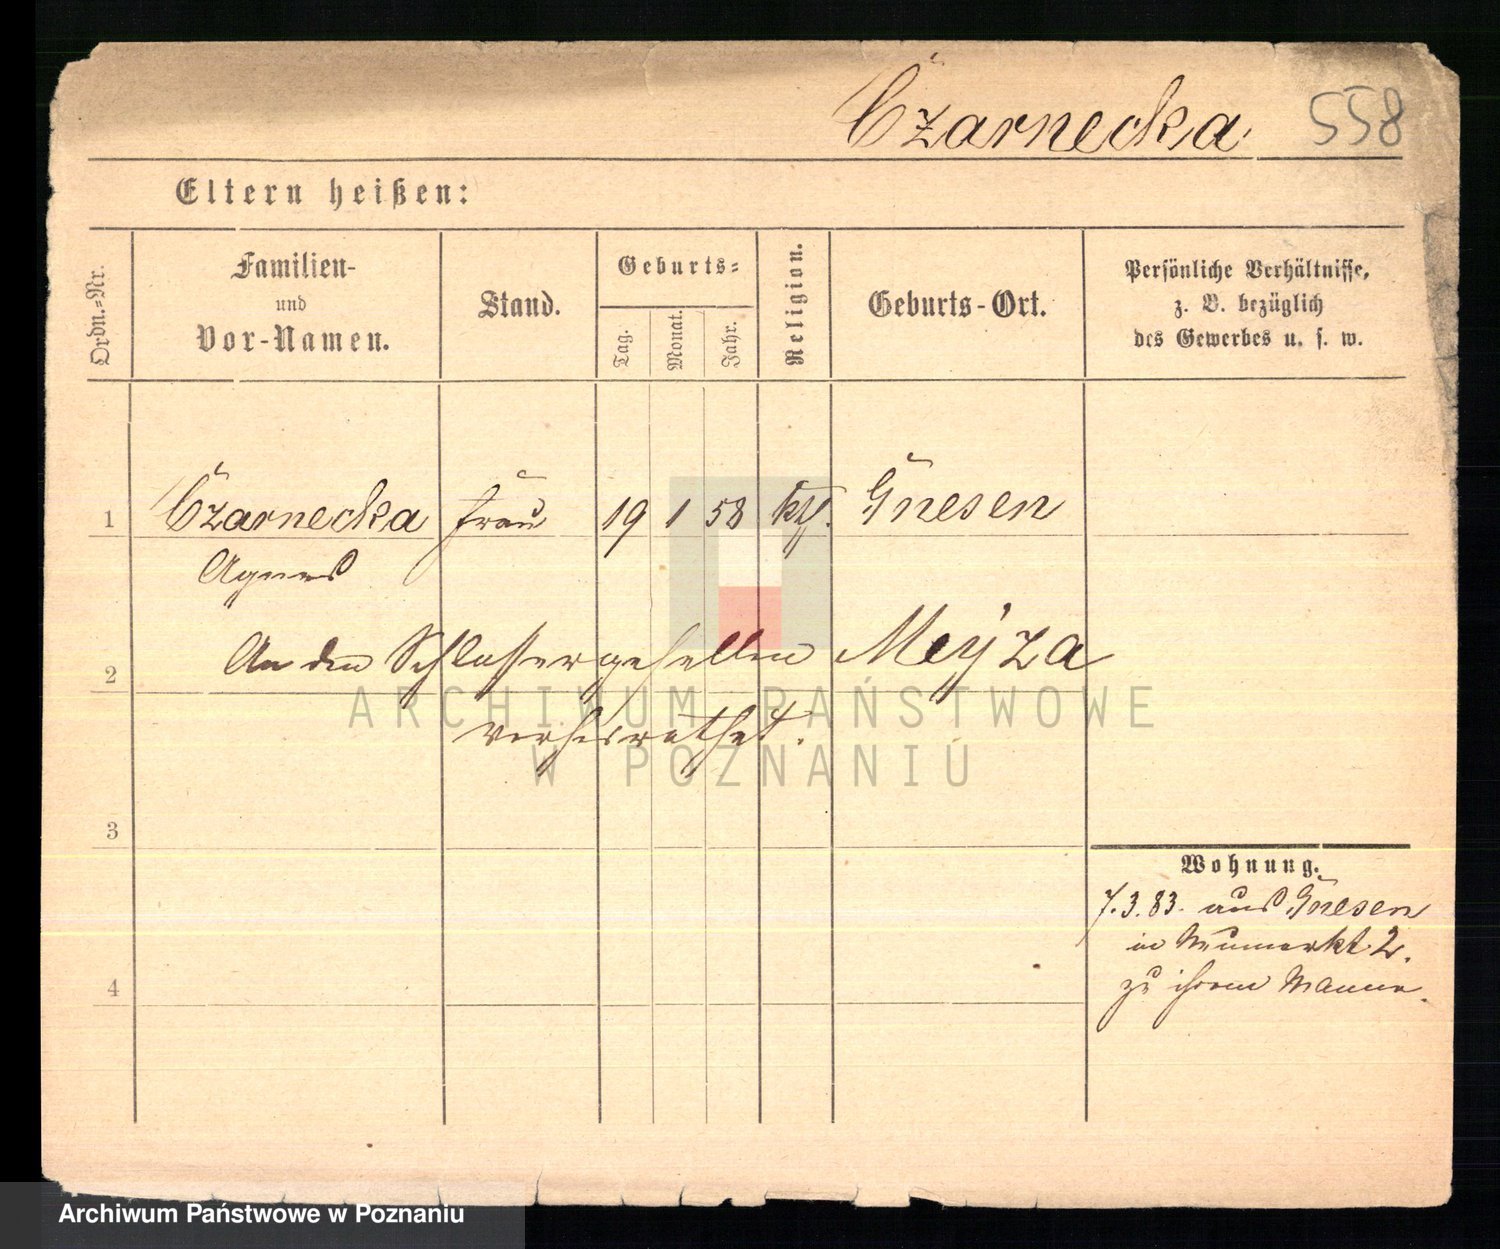 Czarnecka. 558
Eltern heißen:
Ordn.-Nr.
Familien-
und
Vor-Namen.
Stand.
Geburts-
Tag.
Monat.
Jahr.
Religion.
Geburts-Ort.
Persönliche Verhältnisse,
z. B. bezüglich
des Gewerbes u. s. w.
1 Czarnecka Frau 19 1 58 kth. Gnesen
Agnes
2 An den Schlossergesellen Meyza
verheirathet.
3
4
Wohnung.
7.3.83. aus Gnesen
in Neumarkt 2.
zu ihrem Manne.
ARCHIWUM PAŃSTWOWE
W POZNANIU
Archiwum Państwowe w Poznaniu